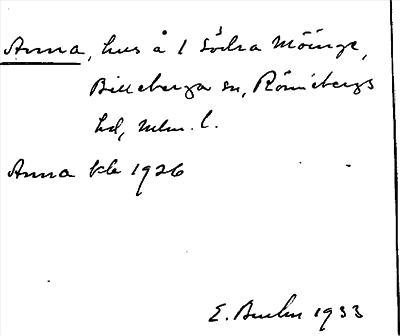 Anna, hus å 1 Södra Möinge,
Billeberga sn, Rönnebergs
hd, Mlm. l.
Anna kb 1926
E. 1933